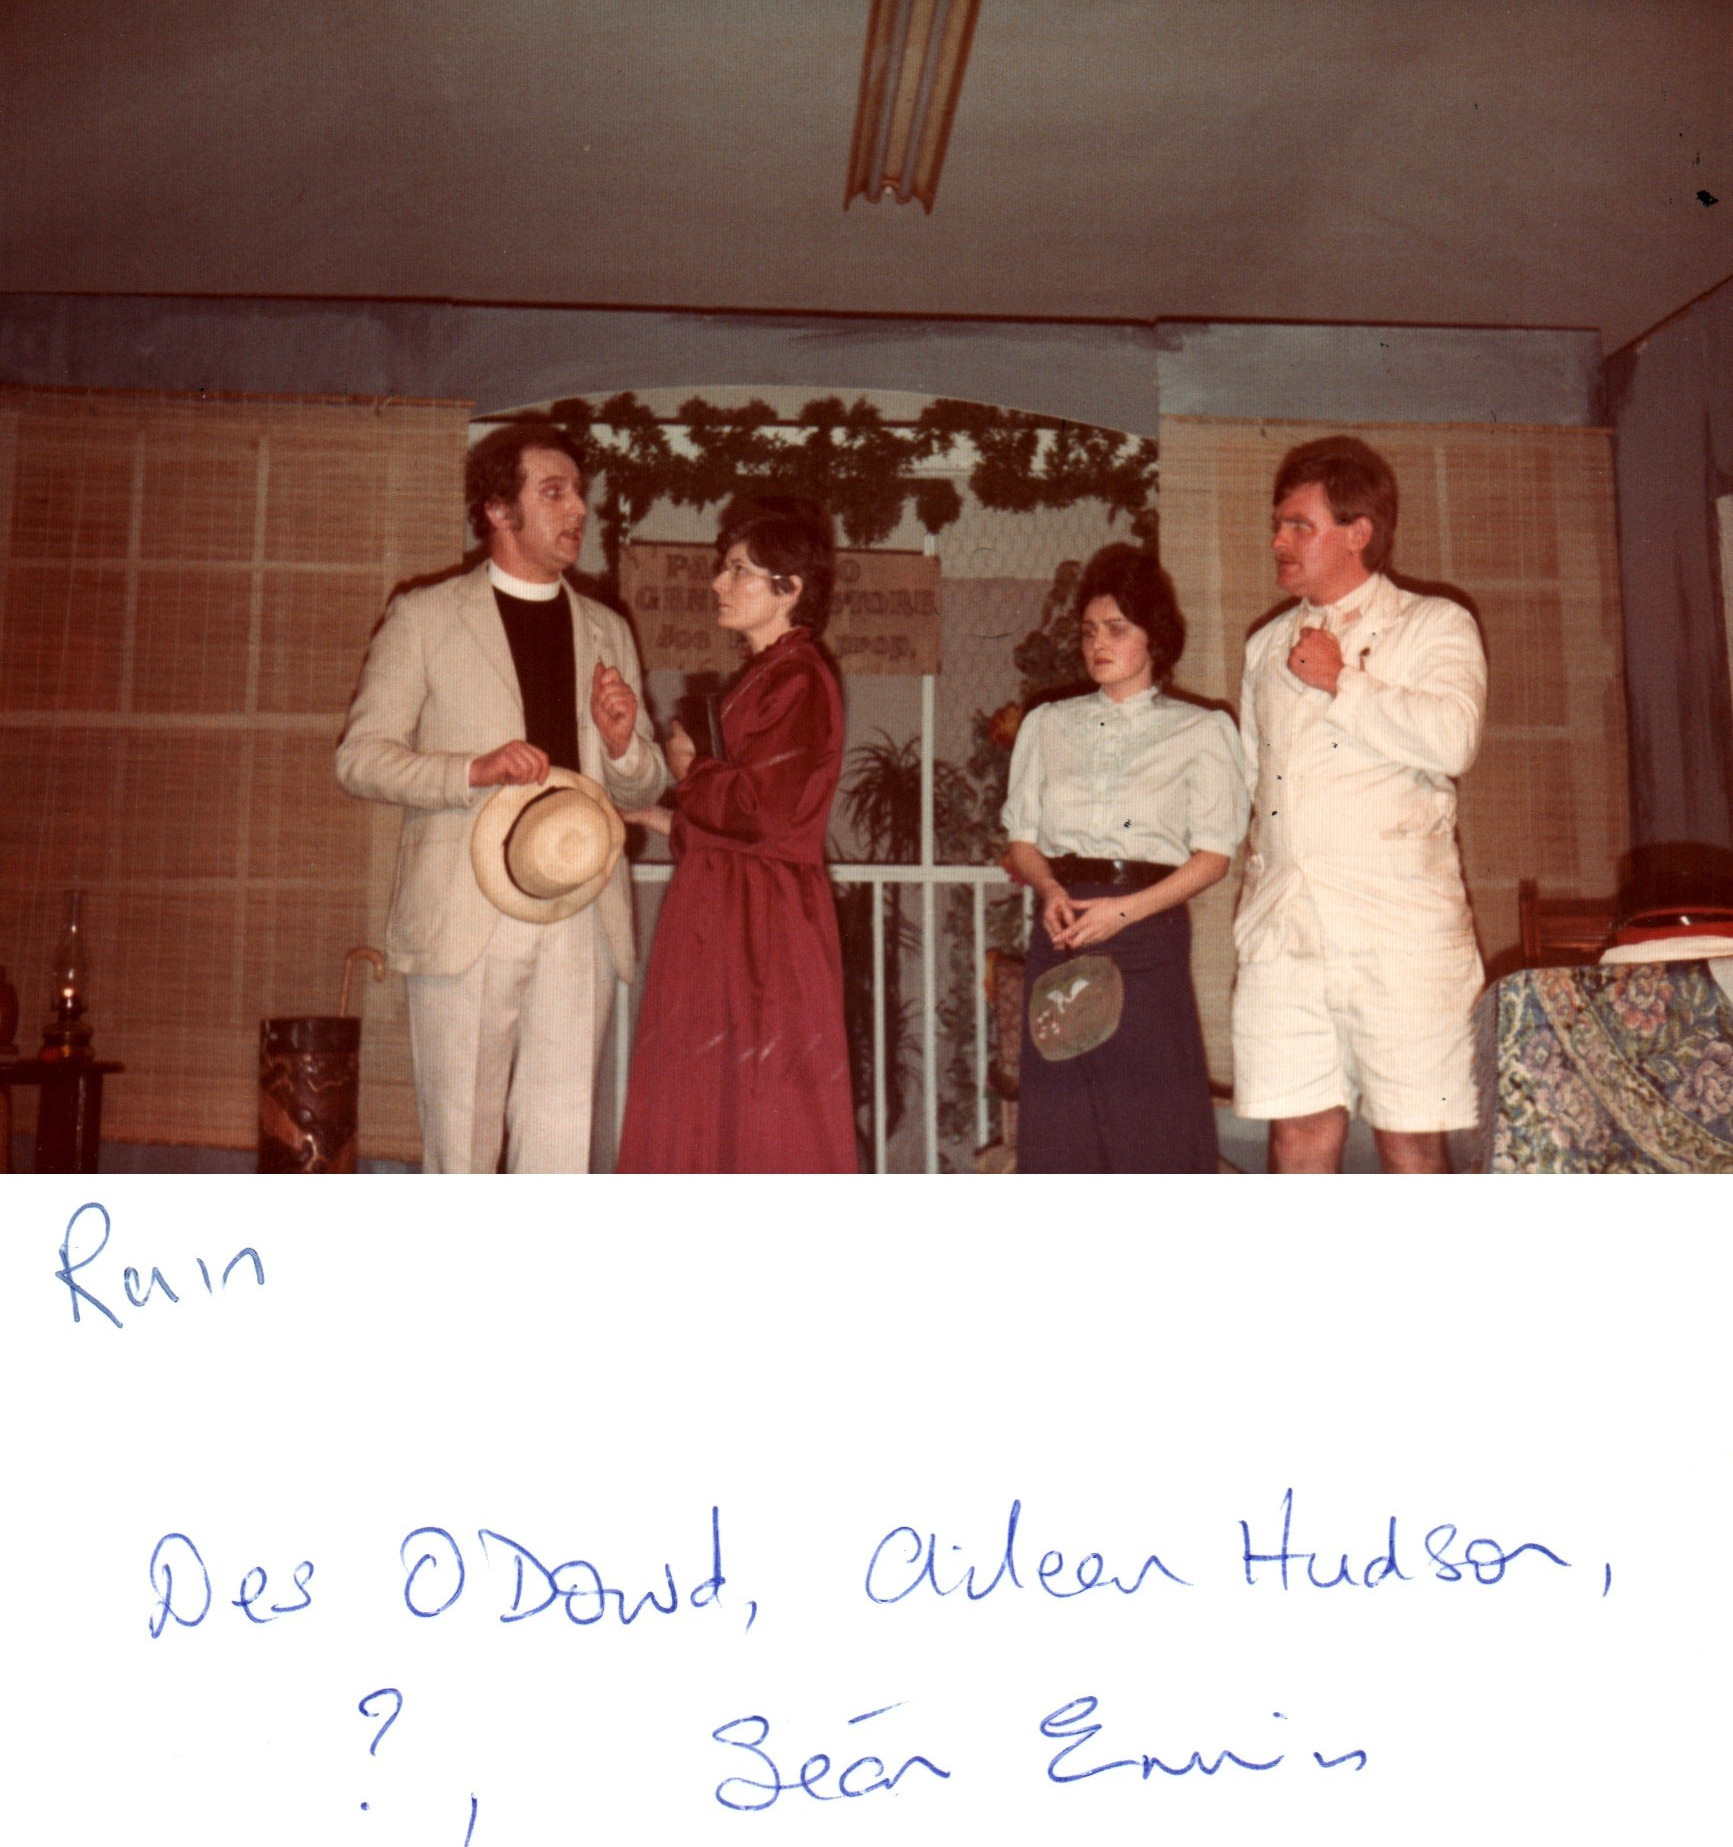 PA O
GEN STORE
Joe prop.
Rain
Des O'Dowd, Aileen Hudson,
?, Seán Ennis